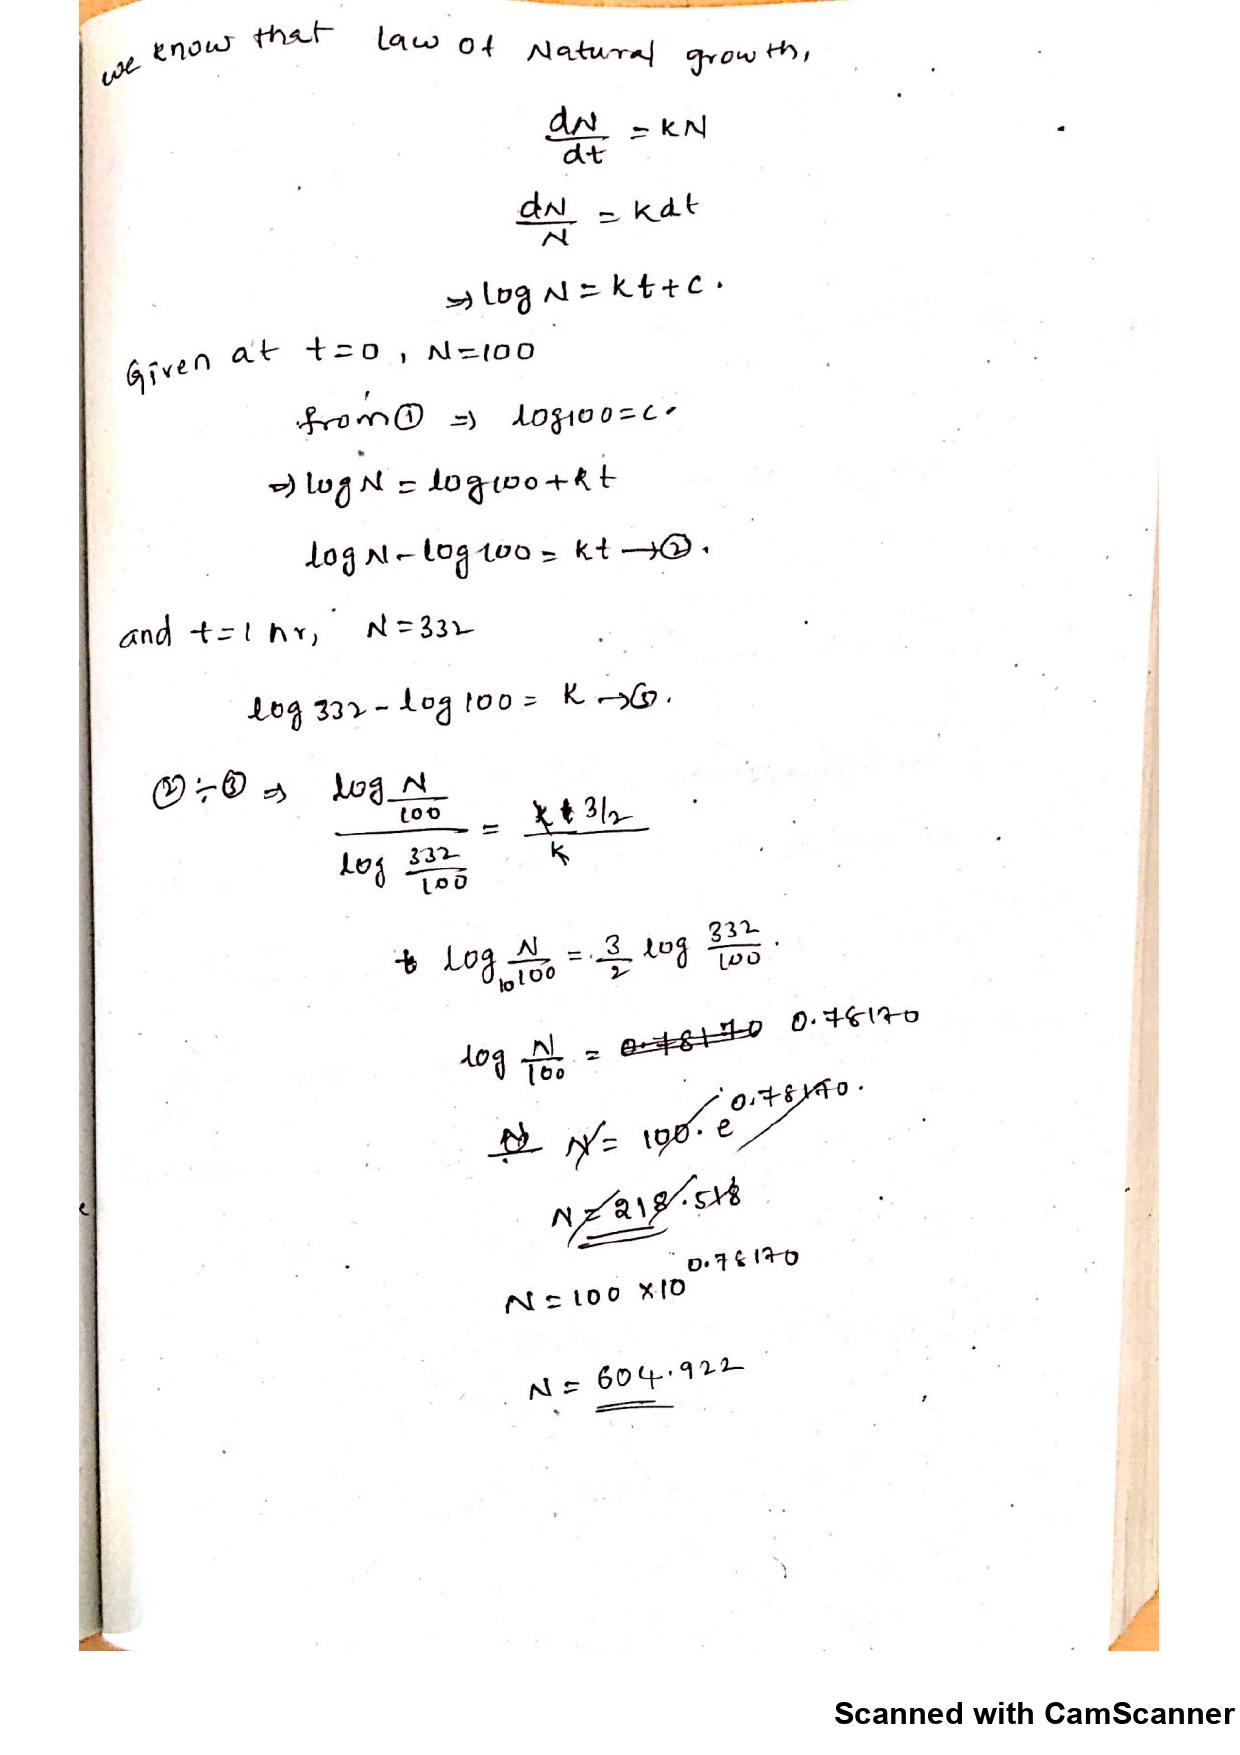 we know that law of Natural growth,
dN/dt = KN
dN/N = kdt
⇒ log N = kt + c.
Given at t=0, N=100
from ① ⇒ log100 = c.
⇒ log N = log100 + kt
log N - log 100 = kt → ②.
and t=1 hr, N=332
log 332 - log 100 = K → ③.
② ÷ ③ ⇒ (log N/100)/(log 332/100) = (k t 3/2)/k
t log₁₀ N/100 = 3/2 log 332/100.
log N/100 = 0.78170 0.78170
N N = 100. e^0.78170.
N = 218.518
N = 100 × 10^0.78170
N = 604.922
Scanned with CamScanner